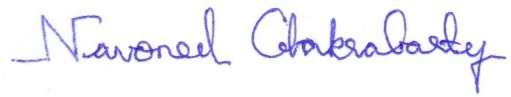 Navoneel Chakrabarty